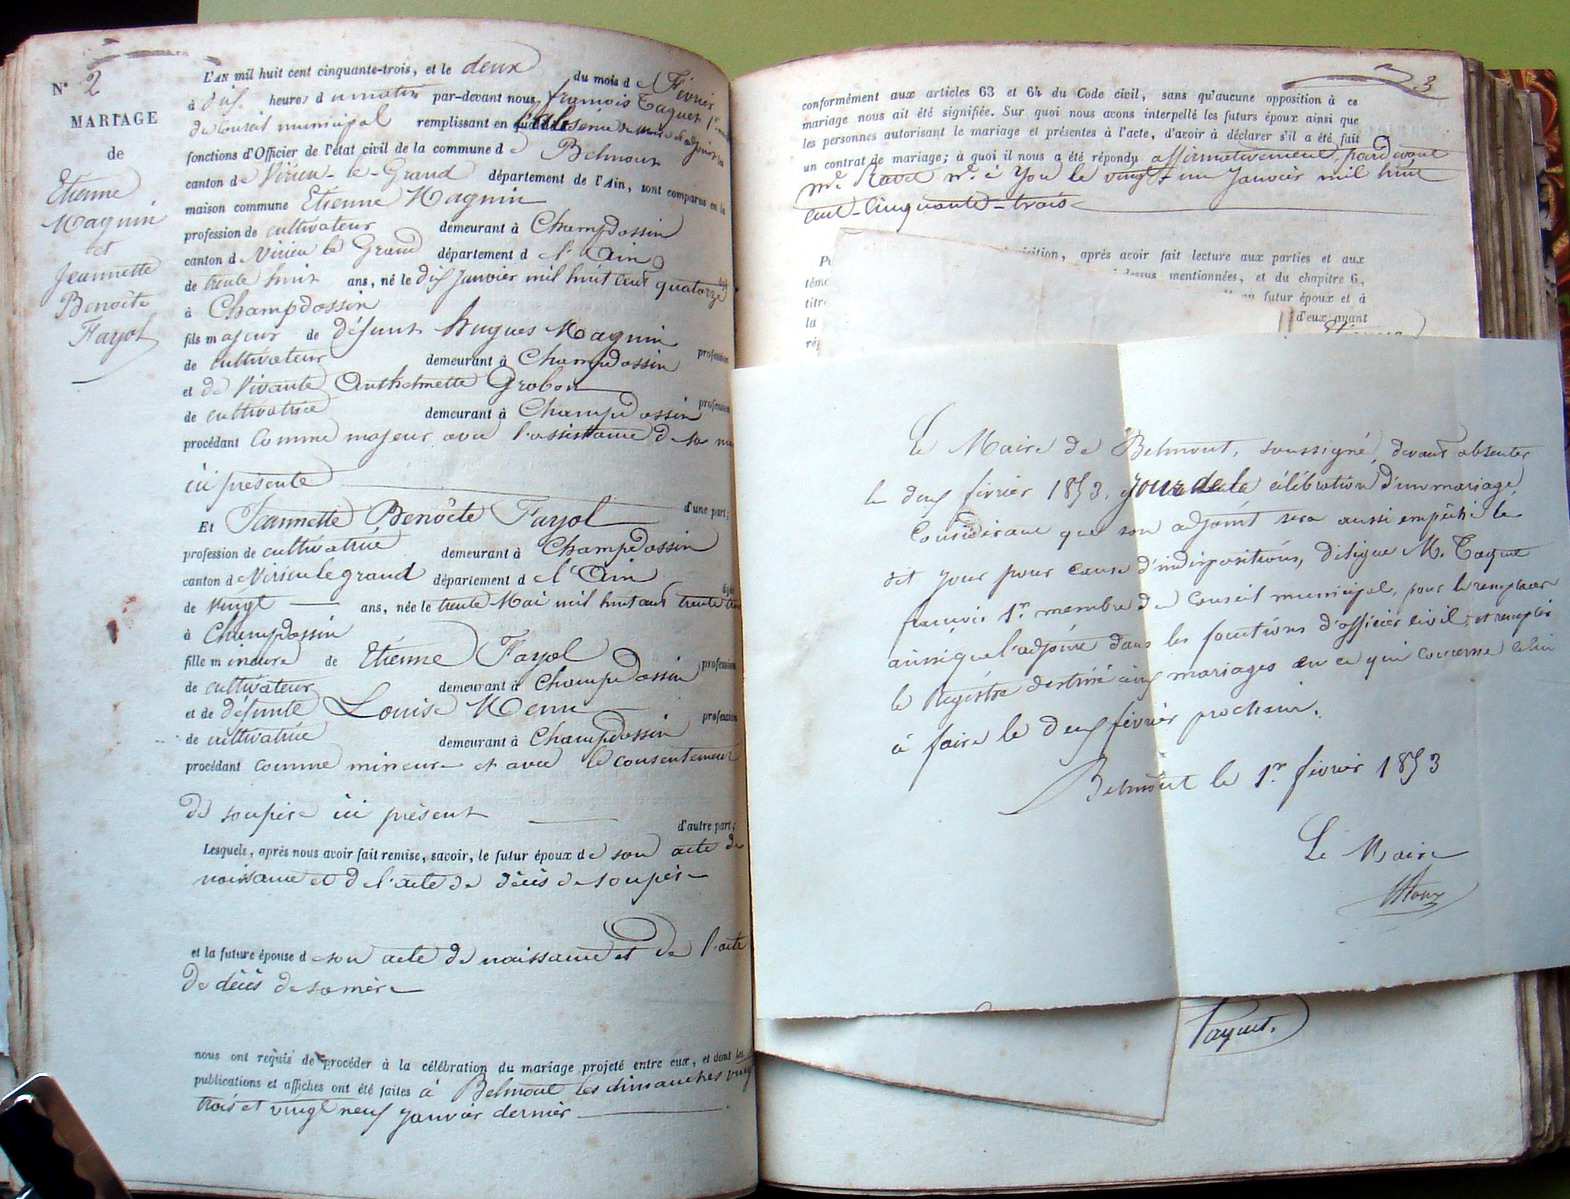 N° 2
MARIAGE
de
Etienne
Magnin
et
Jeannette
Benoîte
Fayol
L'AN mil huit cent cinquante-trois, et le deux du mois de Février
à dix heures du matin par-devant nous françois Taquet 1er
du Conseil municipal remplissant en
fonctions d'Officier de l'état civil de la commune de Belmont
canton de Virieu-le-Grand département de l'Ain, sont comparus en la
maison commune Etienne Magnin
profession de cultivateur demeurant à Champdossin
canton d Virieu le Grand département d l'Ain
de trente huit ans, né le dix Janvier mil huit cent quatorze
à Champdossin
fils majeur de défunt hugues Magnin profession
de cultivateur demeurant à Champdossin
et de Vivante Anthelmette Grobon profession
de cultivatrice demeurant à Champdossin
procédant comme majeur avec l'assistance de sa
ici présente
d'une part;
Et Jeannette Benoîte Fayol
profession de cultivatrice demeurant à Champdossin
canton d Virieu le grand département d l'Ain
de vingt ans, née le trente Mai mil huit cent trente
à Champdossin
fille mineure de Etienne Fayol profession
de cultivateur demeurant à Champdossin
et de défunte Louise profession
de cultivatrice demeurant à Champdossin
procédant comme mineure et avec le consentement
de son père ici présent
d'autre part;
Lesquels, après nous avoir fait remise, savoir, le futur époux de son acte de
naissance et de l'acte de décès de son père
et la future épouse d son acte de naissance et de l'acte
de décès de sa mère
nous ont requis de procéder à la célébration du mariage projeté entre eux, et dont les
publications et affiches ont été faites à Belmont les dimanches vingt
trois et vingt neuf Janvier dernier
3
conformément aux articles 63 et 64 du Code civil, sans qu'aucune opposition à ce
mariage nous ait été signifiée. Sur quoi nous avons interpellé les futurs époux ainsi que
les personnes autorisant le mariage et présentes à l'acte, d'avoir à déclarer s'il a été fait
un contrat de mariage; à quoi il nous a été répondu affirmativement, pardevant
Me Ravet Nre à Yon le vingt un Janvier mil huit
cent cinquante-trois
après avoir fait lecture aux parties et aux
dessus mentionnées, et du chapitre 6,
titre
futur époux et à
la d'eux ayant
Le Maire de Belmont, soussigné, devant absenter
le deux février 1853, jour de la célébration d'un mariage,
Considérant que son adjoint sera aussi empêché le
dit jour pour cause d'indispositions, désigne M. Taquet
françois 1er membre du Conseil municipal, pour le remplacer
ainsi que l'adjoint dans les fonctions d'officier civil, et remplir
le Registre destiné aux mariages en ce qui concerne celui
à faire le deux février prochain.
Belmont le 1er février 1853
Le Maire
Taquet.